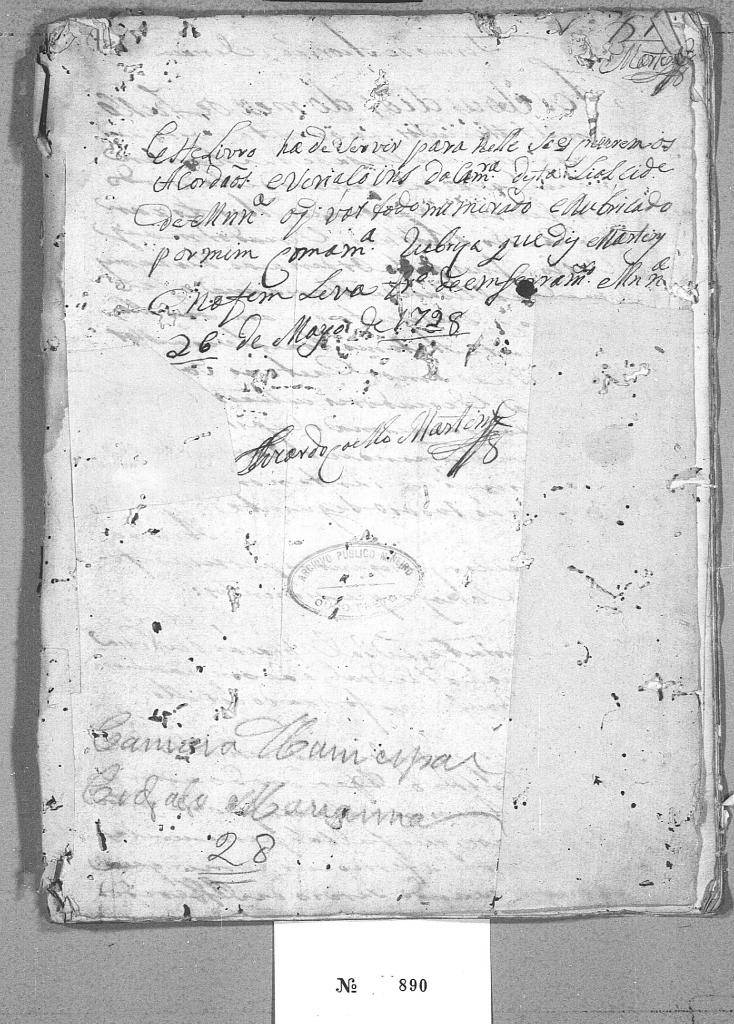 Martinz
Este Livro ha de Servir para nelle Se escreverem os
Acordãos e Veriaçoins da Camrª desta Leal cide
de Mnnª o qˡ vai todo numerado e Rubricado
por mim Com a mª Rubrica que diz Martinz
e no fim Leva trº de emserramtº Mnnª
26 de Mayo de 1728
Coelho Martinz
ARCHIVO PUBLICO MINEIRO
Camara Municipal
Marianna
28
№ 890